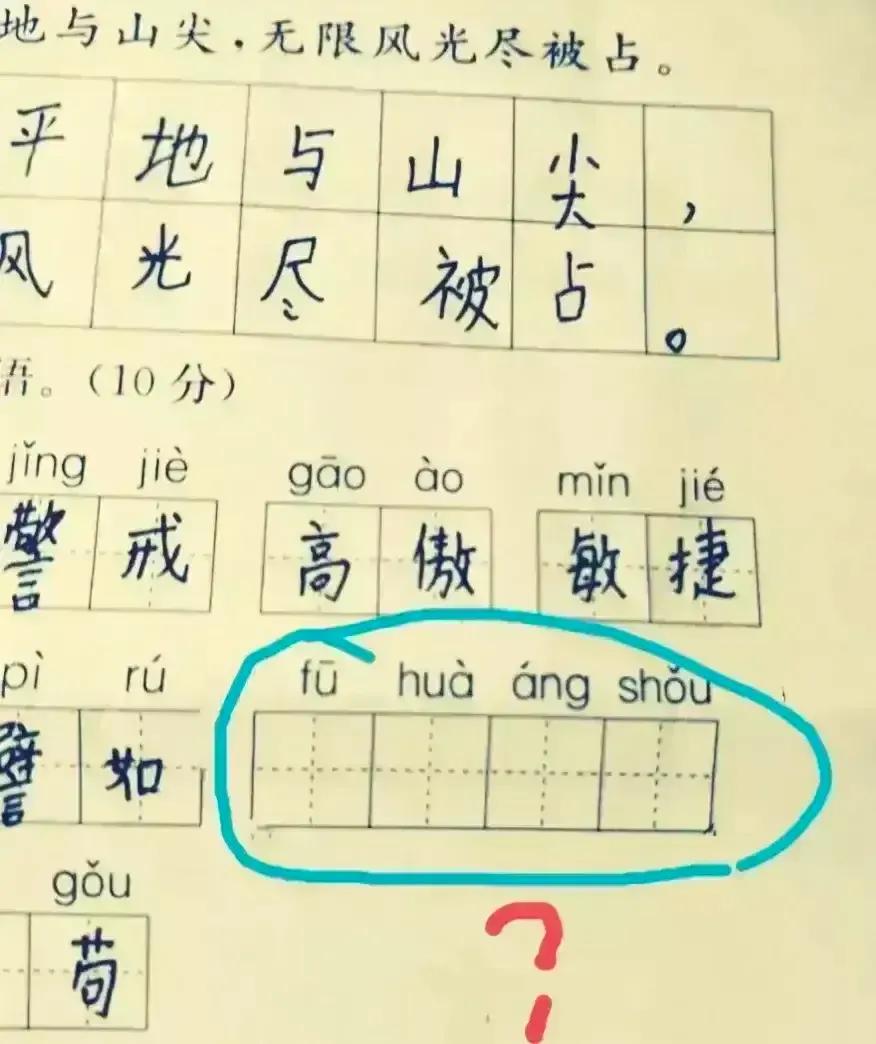 地与山尖，无限风光尽被占。
平地与山尖，
风光尽被占。
语。（10分）
jǐng jiè gāo ào mǐn jié
警戒 高傲 敏捷
pì rú fū huà áng shǒu
譬如
gǒu
苟
?